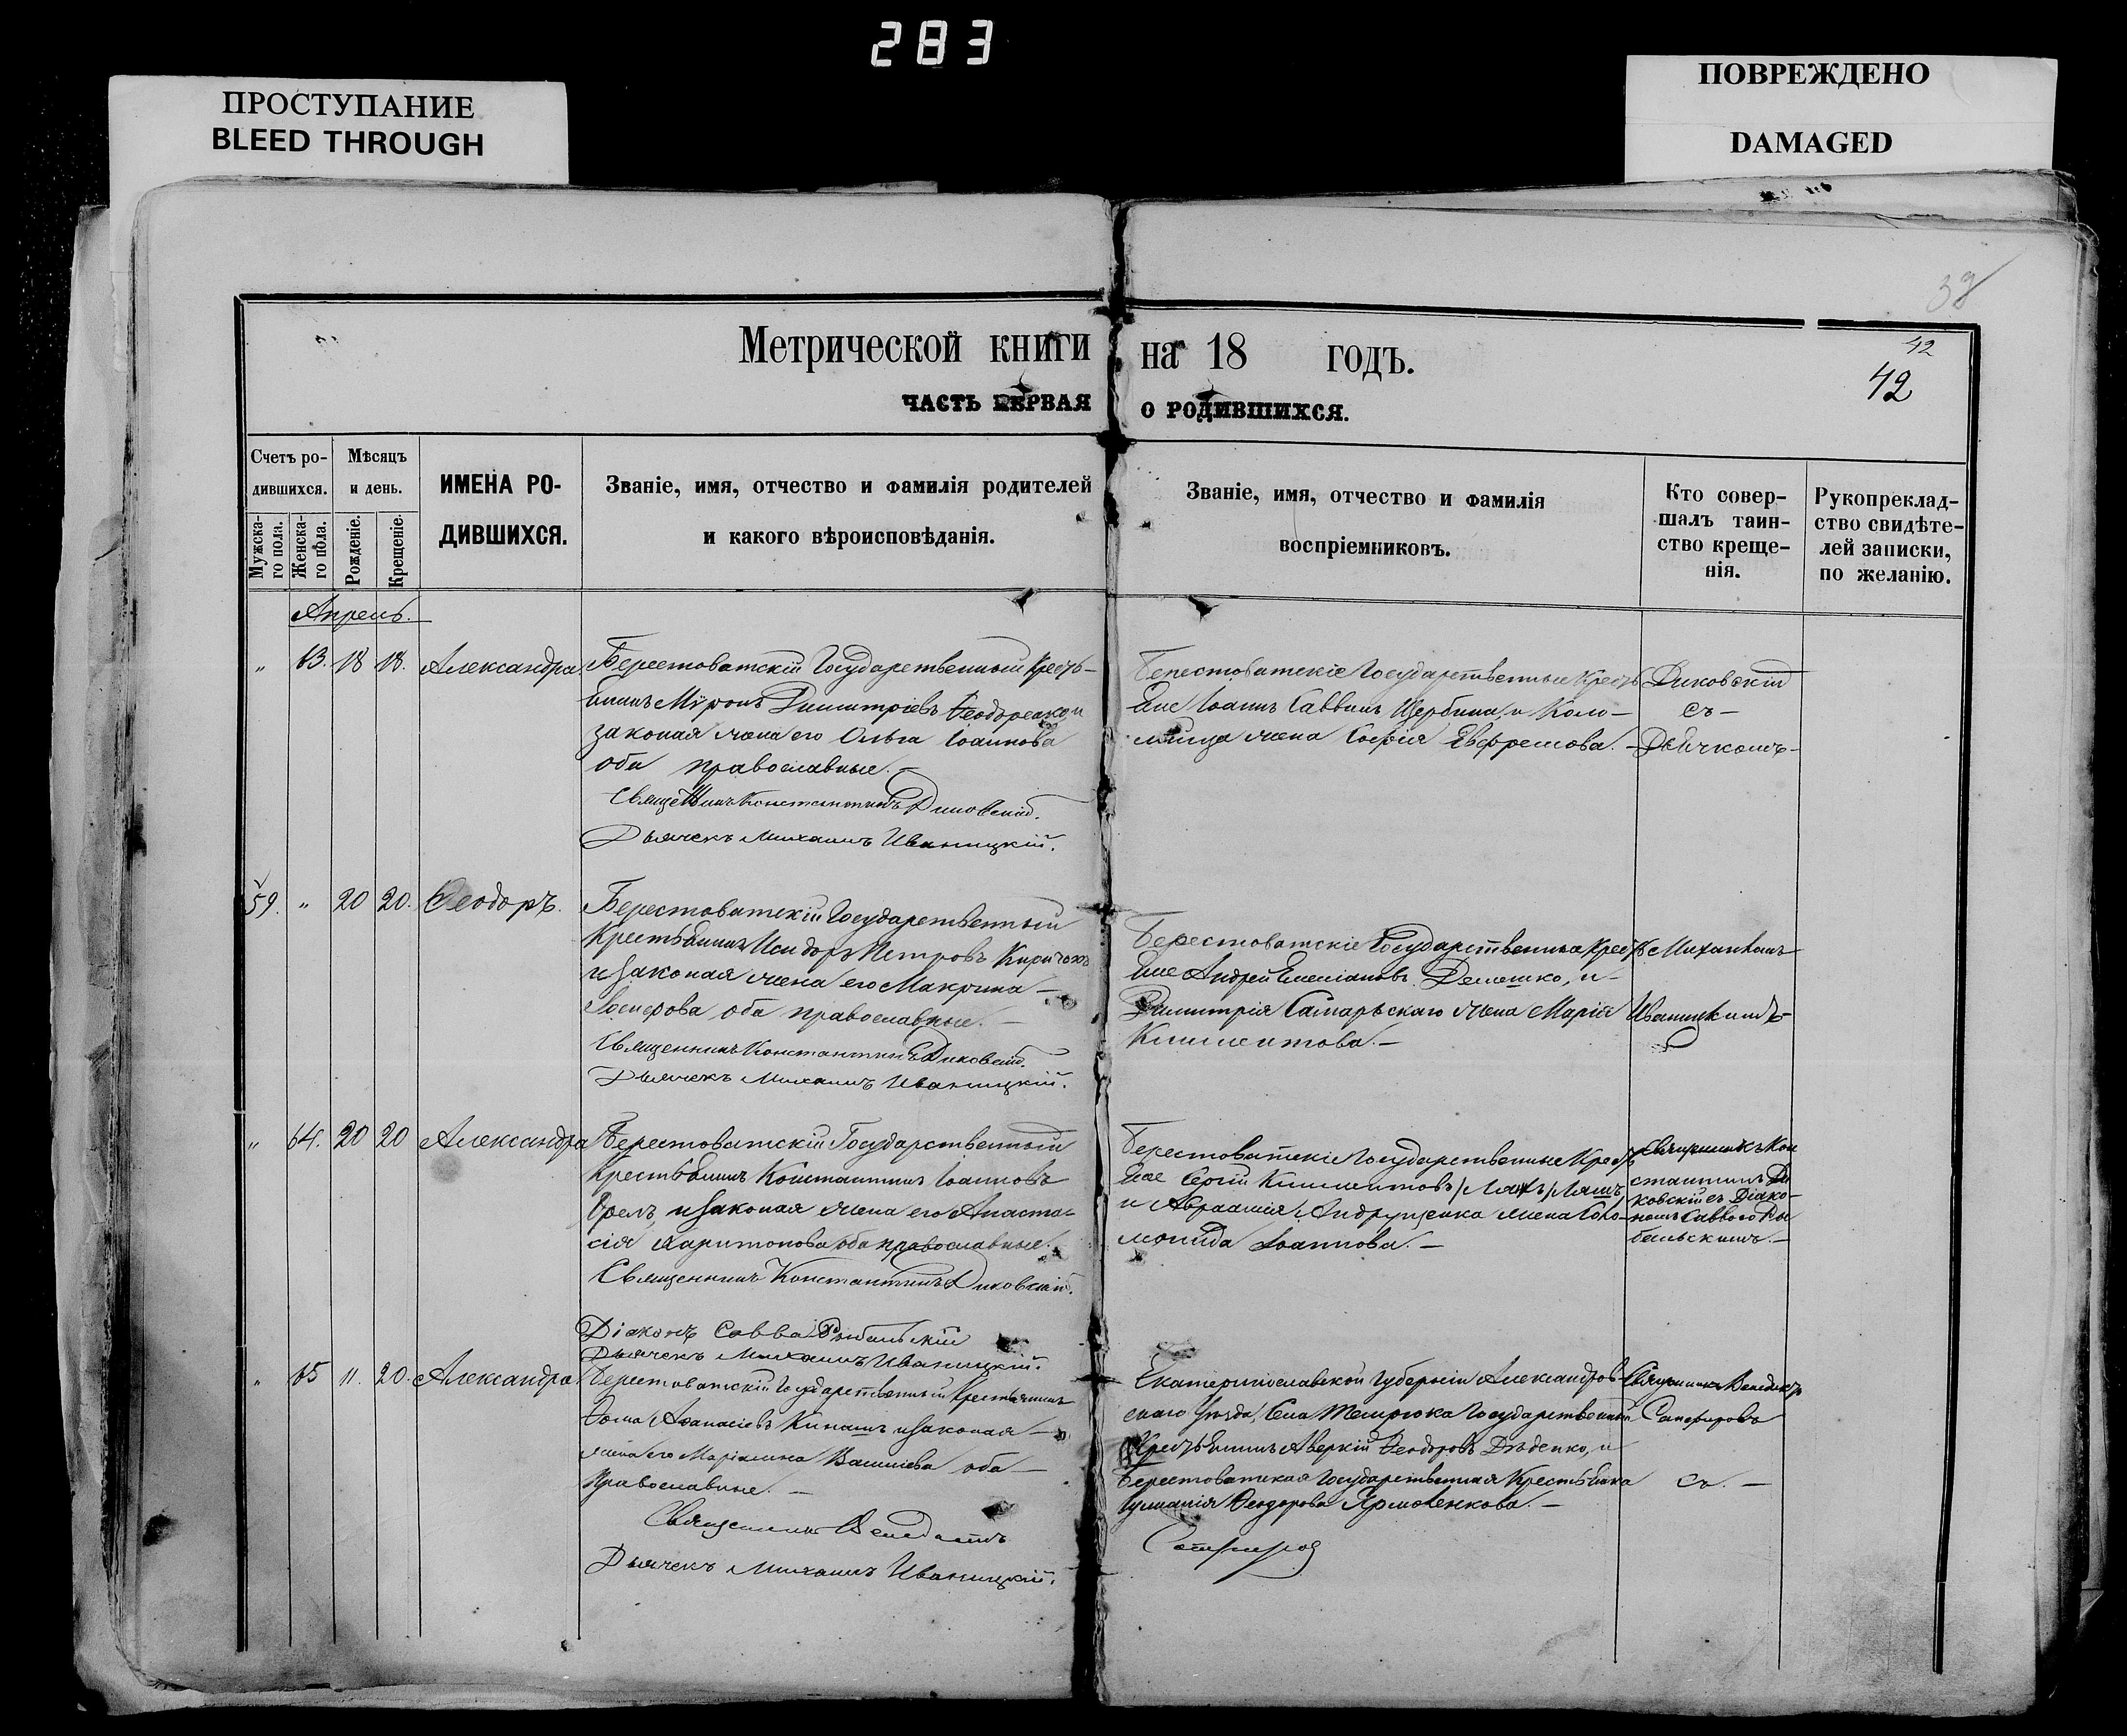 283
ПРОСТУПАНИЕ
BLEED THROUGH
ПОВРЕЖДЕНО
DAMAGED
38
Метрической книги на 18 годъ.
42
42
ЧАСТЬ ПЕРВАЯ О РОДИВШИХСЯ.
Счетъ ро-
дившихся.
Мужска-
го пола.
Женска-
го пола.
Мѣсяцъ
и день.
Рожденіе.
Крещеніе.
ИМЕНА РО-
ДИВШИХСЯ.
Званіе, имя, отчество и фамилія родителей
и какого вѣроисповѣданія.
Званіе, имя, отчество и фамилія
воспріемниковъ.
Кто совер-
шалъ таин-
ство креще-
нія.
Рукопреклад-
ство свидѣте-
лей записки,
по желанію.
Апрель.
" 63. 18 18. Александра.
Берестоватскій Государственный Крестъ-
янинъ Мѵронъ Димитріевъ и
законая жена его Ольга Іоаннова
оба православные.—
Священникъ Константинъ Диковскій.
Дьячекъ Михаилъ Иваницкій.
Берестоватскіе Государственные Крестъ
яне Іоаннъ Саввинъ Щербина, и Коло-
мійца жена Софія Евфремова.—
Диковскій
съ —
Дьячкомъ—
59. " 20 20. Ѳеодоръ.
Берестоватскій Государственный
Крестьянинъ Исидоръ Петровъ Киричокъ
и законая жена его Макрина —
Іосифова оба православные. —
Священникъ Константинъ Диковскій.
Дьячекъ Михаилъ Иваницкій.
Берестоватскіе Государственные Крестъ
яне Андрей Емеліановъ, и —
Димитрія Самарьскаго жена Марія
Климентова.—
Михаиломъ
Иваницкимъ—
" 64. 20 20 Александра
Берестоватскій Государственный
Крестьянинъ Константинъ Іоанновъ
Орелъ, и законая жена его Анаста-
сія Харитонова оба православные.
Священникъ Константинъ Диковскій.
Діаконъ Савва Рыбальскій
Дьячекъ Михаилъ Иваницкій.
Берестоватскіе Государственные Крестъ
яне Сергій Климентовъ /Ляхъ/ Ляшъ,
и Авраамія Андрущенка жена Соло-
монида Іоаннова.—
Священникъ Кон
стантинъ Ди
ковскій съ Діако-
номъ Саввою Ры
бальскимъ.—
" 65 11. 20. Александра
Берестоватскій Государственный Крестьянинъ
Ѳома Аѳанасіевъ Кинашъ и законая —
жена его Маріамна Василіева оба —
Православные. —
Священникъ Венедиктъ
Дьячекъ Михаилъ Иваницкій.
Екатеринославской Губерніи Александров-
скаго Уѣзда, Села Темрюка Государственный
Крестьянинъ Аверкій Ѳеодоровъ Дѣденко, и
Берестоватская Государственная Крестьянка
Ѳеодорова Ярмоленкова.—
Сапфировъ
Священникъ Венедиктъ
Сапфировъ
съ. —